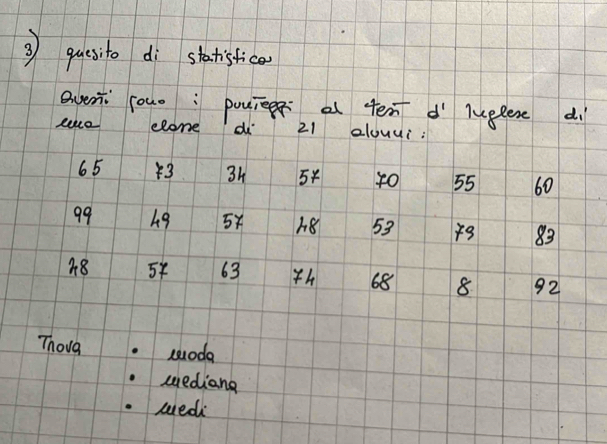 3) quesito di statistica
Questi sono i punteggi al test d' Inglese di
una classe di 21 alunni:
65 73 34 57 70 55 60
99 49 57 48 53 79 83
48 57 63 74 68 8 92
Trova • moda
• mediana
• medi